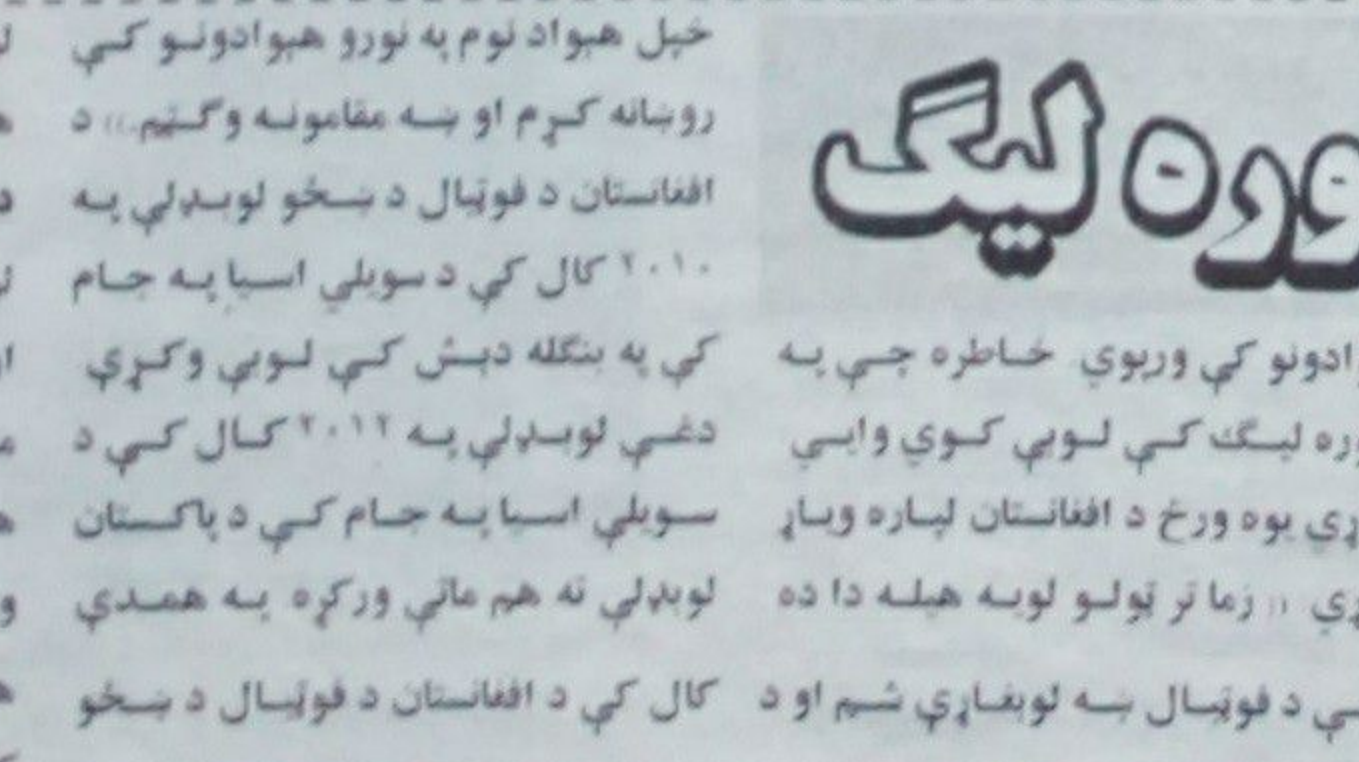 وره لیگ
ادونو کې وریوي خاطره چې په
وره لیګ کې لوبې کوي وایي
ړي یوه ورځ د افغانستان لپاره ویاړ
ړي (( زما تر ټولو لویه هیله دا ده
چې د فوټبال ښه لوبغاړې شم او د
خپل هېواد نوم په نورو هېوادونو کې
روښانه کړم او ښه مقامونه وګټم.)) د
افغانستان د فوټبال د ښځو لوبډلې په
۲۰۱۰ کال کې د سویلي اسیا په جام
کې په بنګله دېش کې لوبې وکړې
دغې لوبډلې په ۲۰۱۲ کال کې د
سویلي اسیا په جام کې د پاکستان
لوبډلې ته هم ماتې ورکړه په همدې
کال کې د افغانستان د فوټبال د ښځو